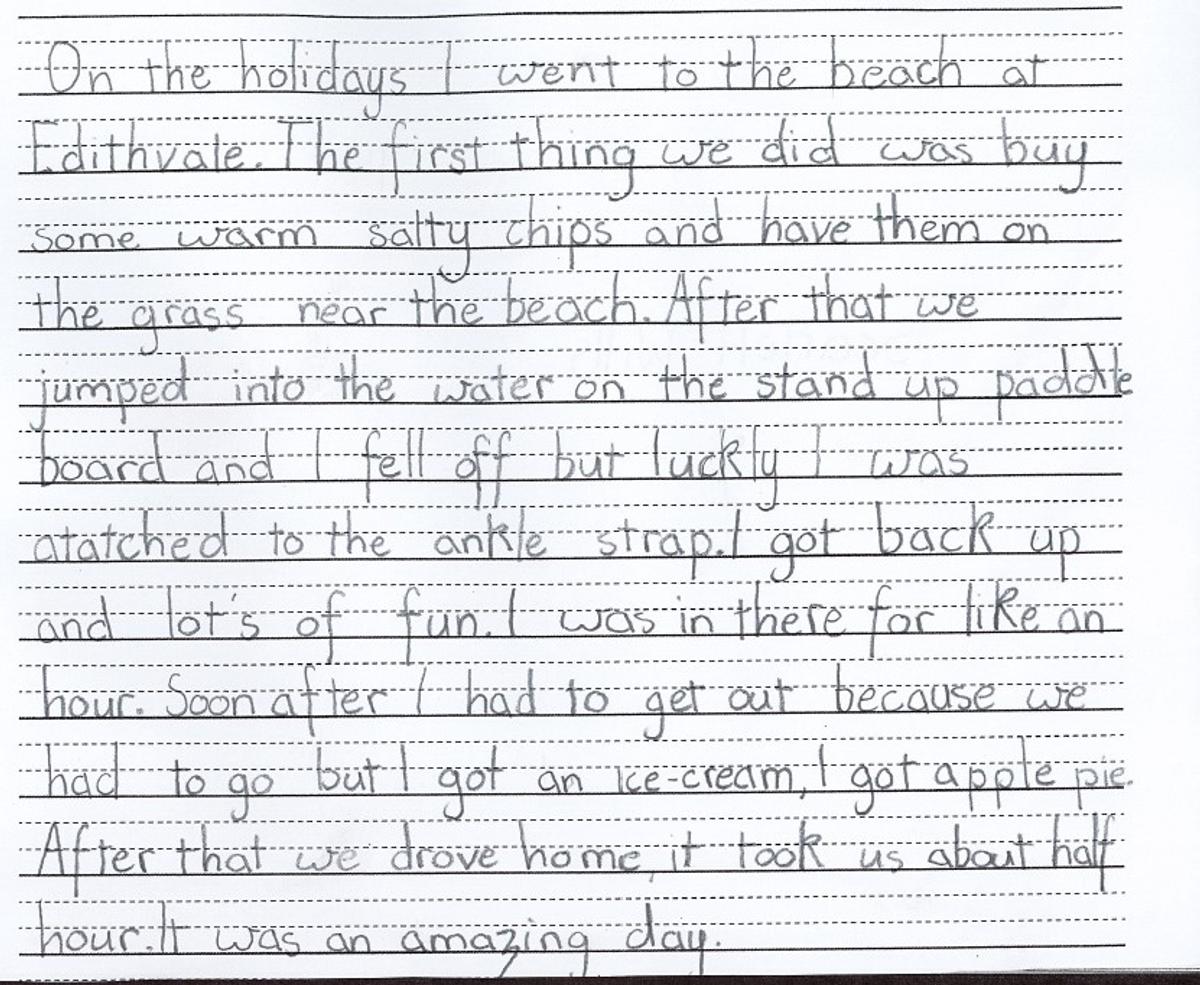 On the holidays I went to the beach at
Edithvale. The first thing we did was buy
some warm salty chips and have them on
the grass near the beach. After that we
jumped into the water on the stand up paddle
board and I fell off but luckly I was
atatched to the ankle strap. I got back up
and lot's of fun. I was in there for like an
hour. Soon after I had to get out because we
had to go but I got an ice-cream, I got apple pie.
After that we drove home, it took us about half
hour. It was an amazing day.